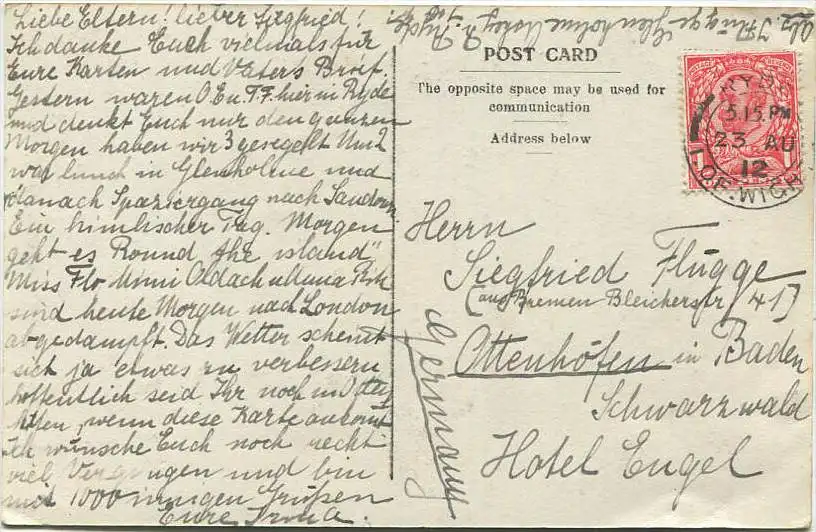 Liebe Eltern! lieber Siegfried!
Ich danke Euch vielmals für
Eure Karten und Vaters Brief.
Gestern waren O En. F.F. hier in Ryde
und denkt Euch nur den ganzen
Morgen haben wir 3 gesegelt Um 2
war lunch in Glenholme und
danach Spaziergang nach Sandown.
Ein himlischer Tag. Morgen
geht es "Round the island"
Miss Flo Mimi Oldach u Muna
sind heute Morgen nach London
abgedampft. Das Wetter scheint
sich ja etwas zu verbessern
hoffentlich seid Ihr noch in Otten
höfen, wenn diese Karte ankomt
Ich wünsche Euch noch recht
viel Vergnügen und bin
mit 1000 innigen Grüßen
Eure Irma.
Abs. I Flügge Glenholme Ryde
POST CARD
The opposite space may be used for
communication
Address below
RYDE
5.15 PM
23 AU
12
I. OF. WIGHT
Herrn
Siegfried Flügge
(aus Bremen Bleicherstr 41)
Ottenhöfen in Baden
Schwarzwald
Hotel Engel
Germany